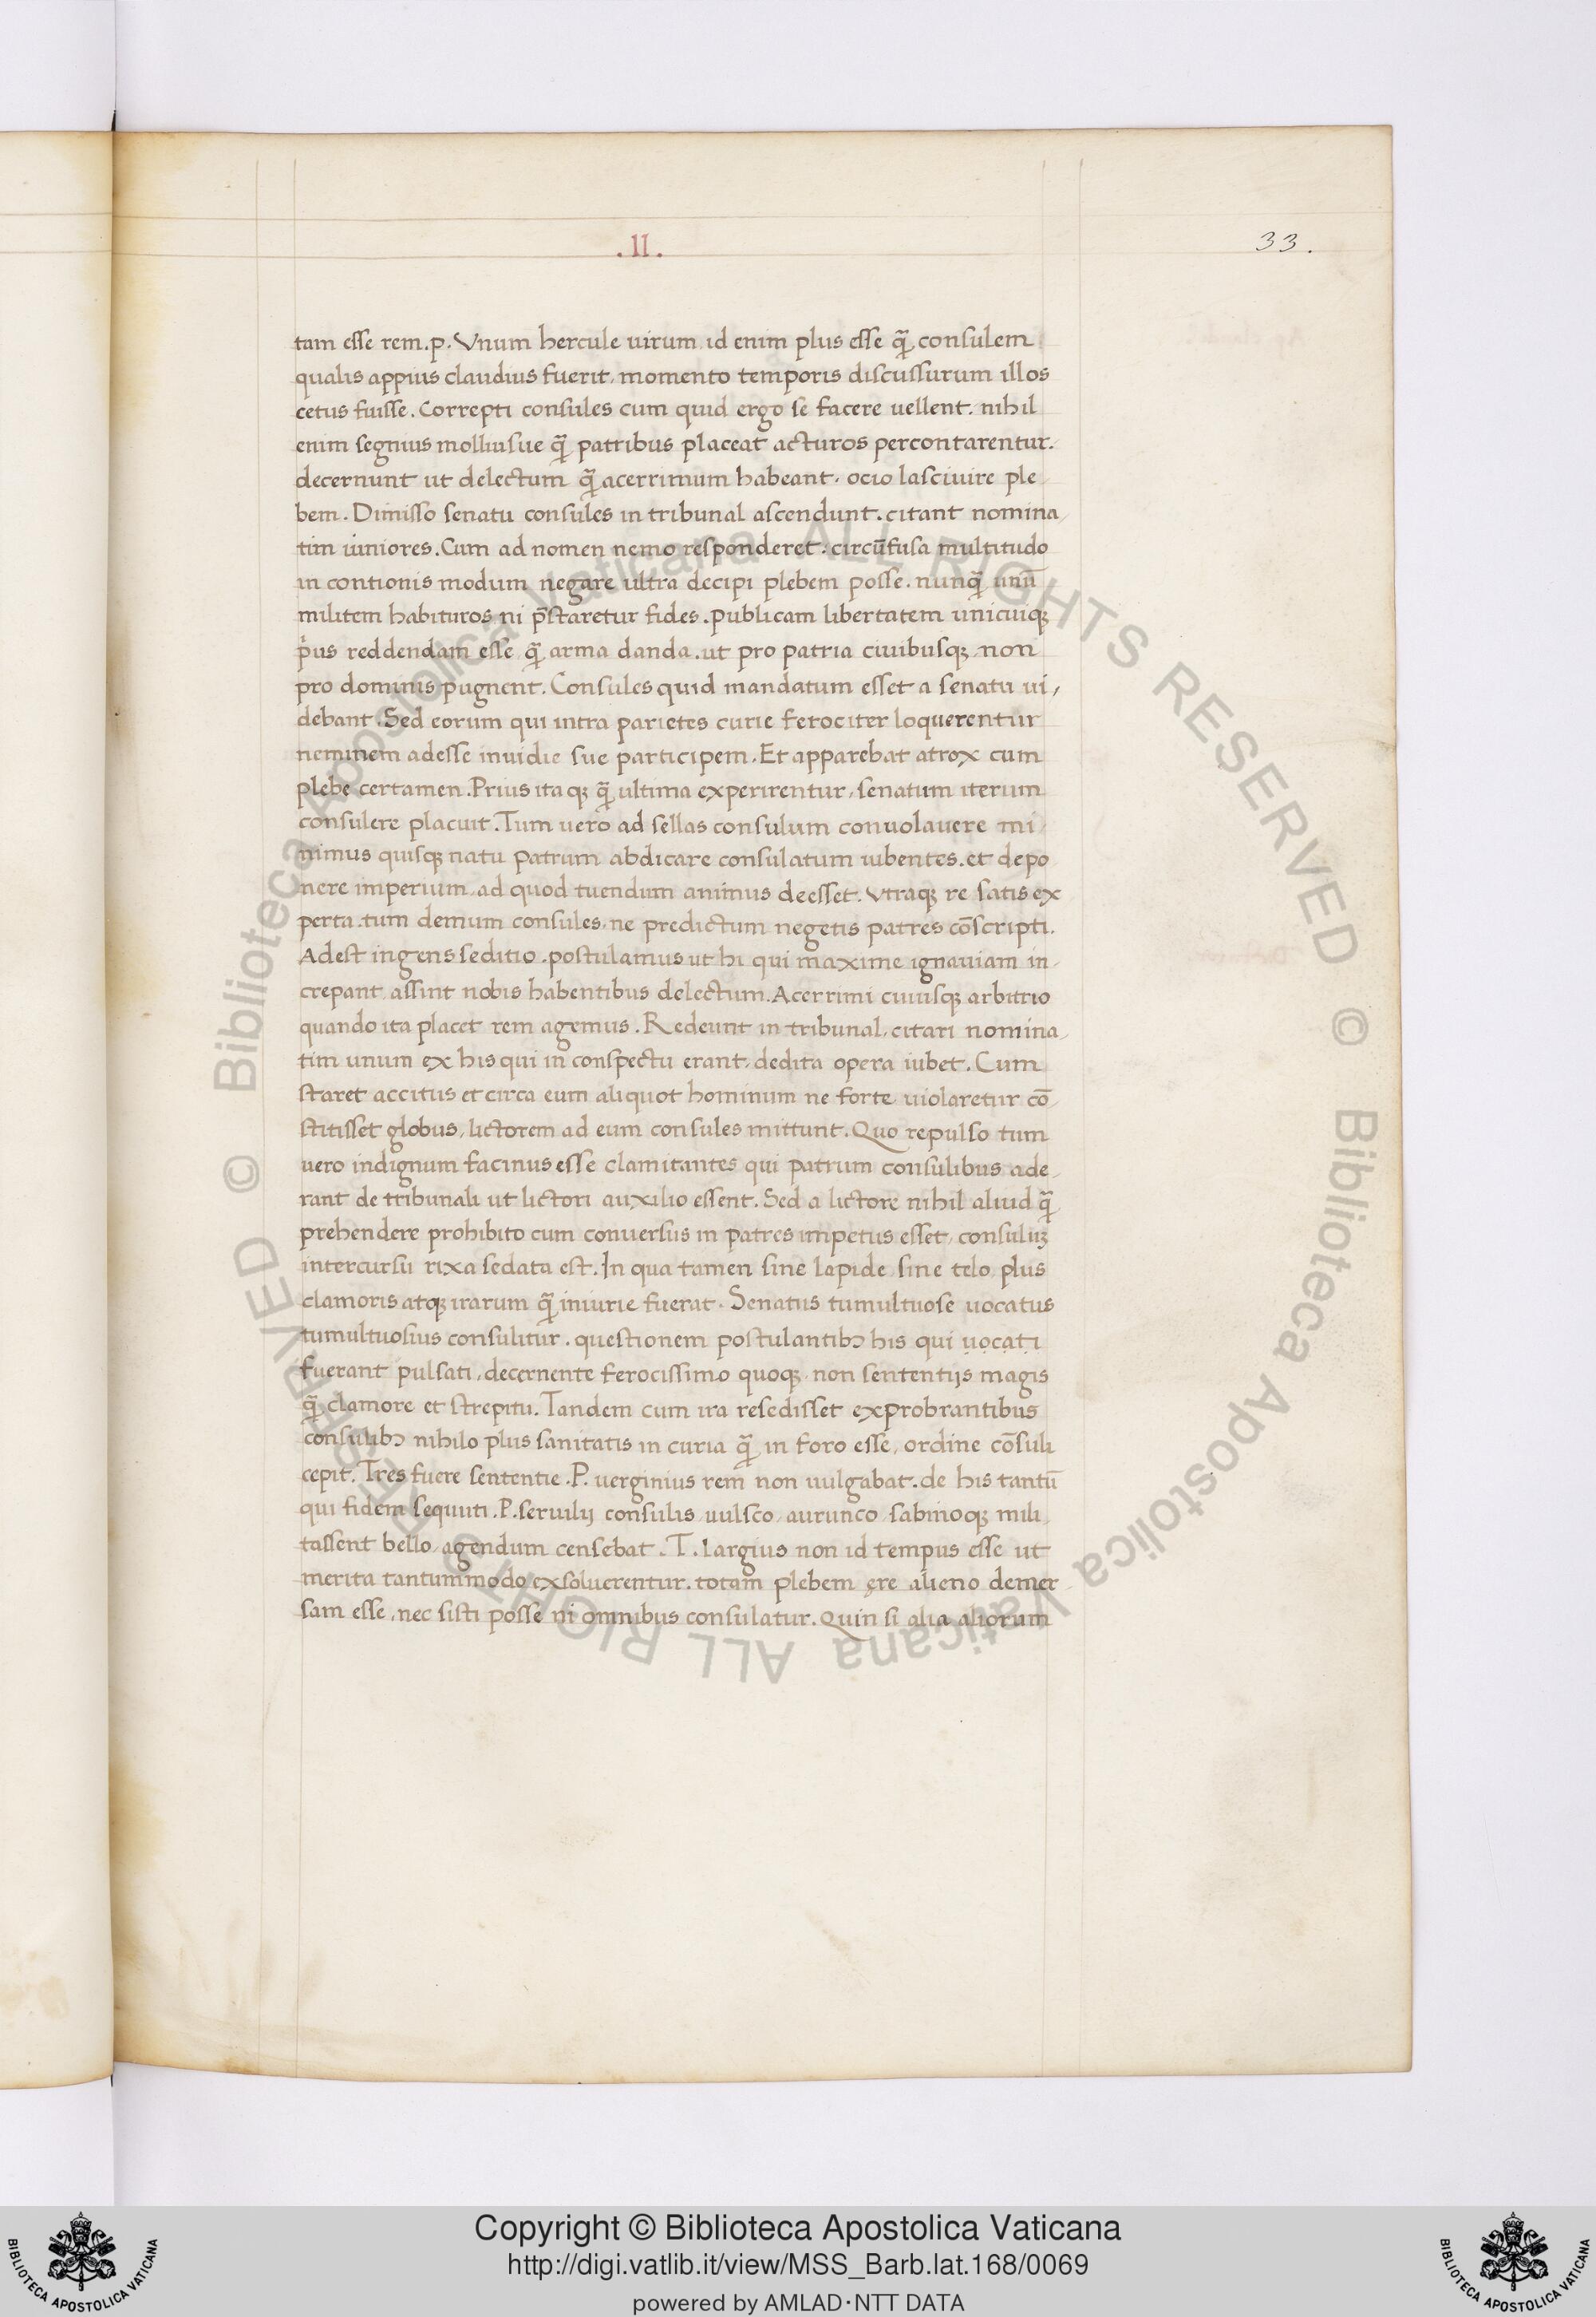 .II.
33.
tam esse rem.p. Vnum hercule uirum id enim plus esse q̃ consulem
qualis appius claudius fuerit, momento temporis discussurum illos
cetus fuisse. Correpti consules cum quid ergo se facere uellent. nihil
enim segnius molliusue q̃ patribus placeat acturos percontarentur.
decernunt ut delectum q̃ acerrimum habeant. ocio lasciuire ple
bem. Dimisso senatu consules in tribunal ascendunt. citant nomina
tim iuniores. Cum ad nomen nemo responderet. circũfusa multitudo
in contionis modum negare ultra decipi plebem posse. nunq̃ unũ
militem habituros ni p̄staretur fides. publicam libertatem unicuiqꝫ
pͥus reddendam esse q̃ arma danda. ut pro patria ciuibusqꝫ non
pro dominis pugnent. Consules quid mandatum esset a senatu ui,
debant. Sed eorum qui intra parietes curie ferociter loquerentur
neminem adesse inuidie sue participem. Et apparebat atrox cum
plebe certamen. Prius itaqꝫ q̃ ultima experirentur, senatum iterum
consulere placuit. Tum uero ad sellas consulum conuolauere mi,
nimus quisqꝫ natu patrum abdicare consulatum iubentes. et depo
nere imperium, ad quod tuendum animus deesset. Vtraqꝫ re satis ex
perta. tum demum consules, ne predictum negetis patres cõscripti.
Adest ingens seditio. postulamus ut hi qui maxime ignauiam in
crepant assint nobis habentibus delectum. Acerrimi cuiusqꝫ arbitrio
quando ita placet rem agemus. Redeunt in tribunal, citari nomina,
tim unum ex his qui in conspectu erant, dedita opera iubet. Cum
staret accitus et circa eum aliquot hominum ne forte uiolaretur cõ,
stitisset globus, lictorem ad eum consules mittunt. Quo repulso tum
uero indignum facinus esse clamitantes qui patrum consulibus ade,
rant de tribunali ut lictori auxilio essent. Sed a lictore nihil aliud q̃
prehendere prohibito cum conuersus in patres impetus esset, consuluꝫ
intercursu rixa sedata est. In qua tamen sine lapide sine telo plus
clamoris atqꝫ irarum q̃ iniurie fuerat. Senatus tumultuose uocatus
tumultuosius consulitur. questionem postulantibꝰ his qui uocati
fuerant pulsati, decernente ferocissimo quoqꝫ non sententijs magis
q̃ clamore et strepitu. Tandem cum ira resedisset exprobrantibus
consulibꝰ nihilo plus sanitatis in curia q̃ in foro esse, ordine cõsuli
cepit. Tres fuere sententie. P. uerginius rem non uulgabat. de his tantũ
qui fidem sequuti. P. seruilij consulis uulsco, aurunco, sabinoqꝫ mili,
tassent bello, agendum censebat. T. largius non id tempus esse ut
merita tantummodo exsoluerentur. totam plebem ęre alieno demer
sam esse, nec sisti posse ni omnibus consulatur. Quin si alia aliorum
© Biblioteca Apostolica Vaticana ALL RIGHTS RESERVED
© Biblioteca Apostolica Vaticana ALL RIGHTS RESERVED
Copyright © Biblioteca Apostolica Vaticana
http://digi.vatlib.it/view/MSS_Barb.lat.168/0069
powered by AMLAD·NTT DATA
BIBLIOTECA APOSTOLICA VATICANA
BIBLIOTECA APOSTOLICA VATICANA